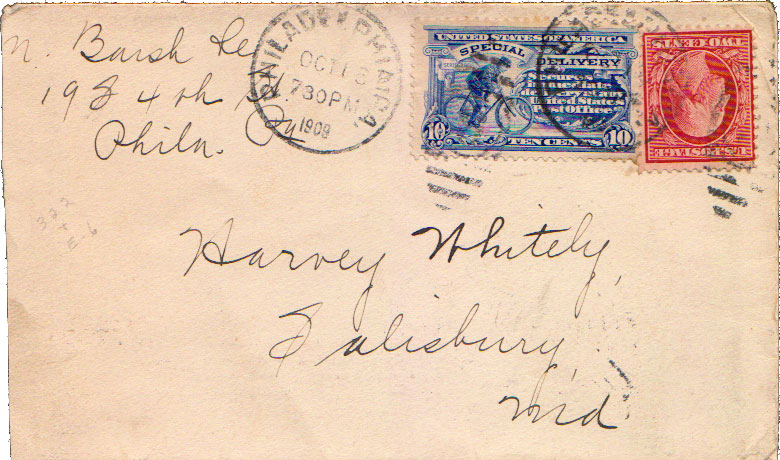 N. Barsh
19 S 4th St.
Phila. Pa
PHILADELPHIA, PA.
OCT 13
730PM
1909
UNITED STATES OF AMERICA
SPECIAL DELIVERY
Secures
immediate
delivery at any
United States
Post Office
10 TEN CENTS 10
U.S. POSTAGE
TWO CENTS
322
E-6
Harvey Whitely,
Salisbury,
Md